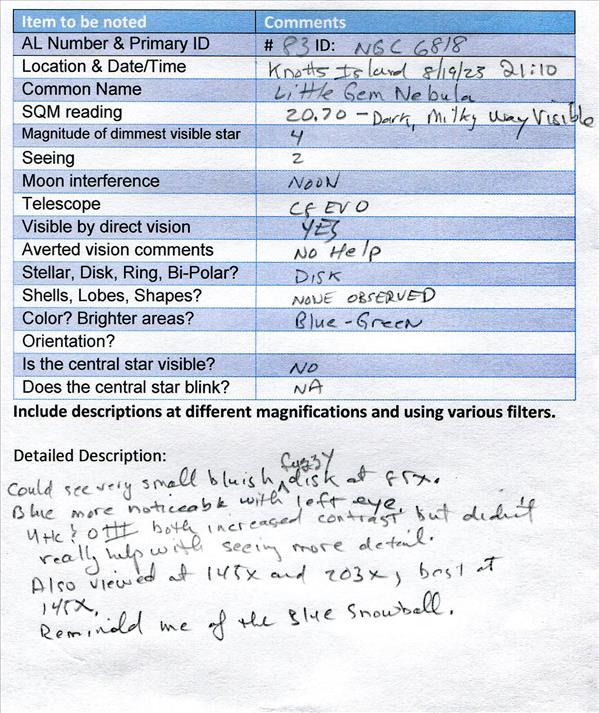 Item to be noted Comments
AL Number & Primary ID # 83 ID: NGC 6818
Location & Date/Time Knotts Island 8/19/23 21:10
Common Name Little Gem Nebula
SQM reading 20.70 - Dark, Milky Way Visible
Magnitude of dimmest visible star 4
Seeing 2
Moon interference NOON
Telescope C8 EVO
Visible by direct vision YES
Averted vision comments No Help
Stellar, Disk, Ring, Bi-Polar? DISK
Shells, Lobes, Shapes? NONE OBSERVED
Color? Brighter areas? Blue-Green
Orientation?
Is the central star visible? NO
Does the central star blink? NA
Include descriptions at different magnifications and using various filters.
Detailed Description:
Could see very small bluish fuzzy disk at 85x.
Blue more noticeable with left eye.
UHC & OIII both increased contrast but didn't
really help with seeing more detail.
Also viewed at 145x and 203x, best at
145x.
Remindd me of the Blue Snowball.